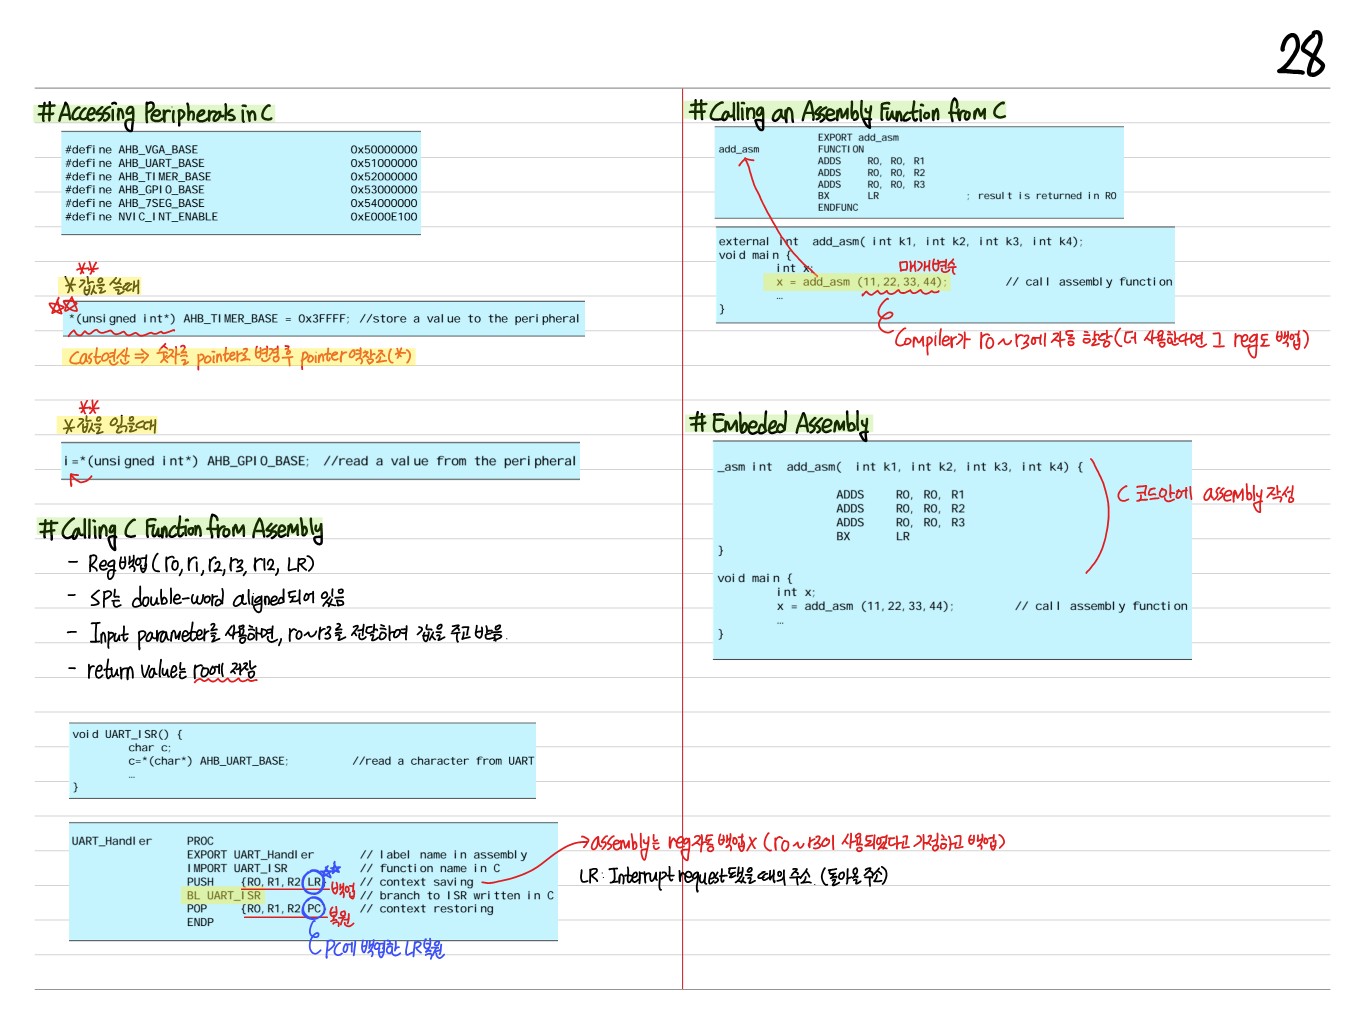 28
# Accessing Peripherals in C
#define AHB_VGA_BASE 0x50000000
#define AHB_UART_BASE 0x51000000
#define AHB_TIMER_BASE 0x52000000
#define AHB_GPIO_BASE 0x53000000
#define AHB_7SEG_BASE 0x54000000
#define NVIC_INT_ENABLE 0xE000E100
**
* 값을 쓸때
☆☆
*(unsigned int*) AHB_TIMER_BASE = 0x3FFFF; //store a value to the peripheral
Cast연산 ⇒ 숫자를 pointer로 변경 후 pointer 역참조(*)
**
* 값을 읽을때
i=*(unsigned int*) AHB_GPIO_BASE; //read a value from the peripheral
# Calling C Function from Assembly
- Reg 백업 (r0, r1, r2, r3, r12, LR)
- SP는 double-word aligned되어 있음
- Input parameter를 사용하면, r0~r3를 전달하여 값을 주고 받음.
- return value는 r0에 저장
void UART_ISR() {
char c;
c=*(char*) AHB_UART_BASE; //read a character from UART
…
}
UART_Handler PROC
EXPORT UART_Handler // label name in assembly
IMPORT UART_ISR // function name in C
PUSH {R0,R1,R2,LR} // context saving
백업
BL UART_ISR // branch to ISR written in C
POP {R0,R1,R2,PC} // context restoring
복원
ENDP
PC에 백업한 LR 복원
→ assembly는 reg 자동 백업 X (r0~r3이 사용되었다고 가정하고 백업)
LR: Interrupt request 됐을 때의 주소. (돌아올 주소)
# Calling an Assembly Function from C
EXPORT add_asm
add_asm FUNCTION
ADDS R0, R0, R1
ADDS R0, R0, R2
ADDS R0, R0, R3
BX LR ; result is returned in R0
ENDFUNC
external int add_asm( int k1, int k2, int k3, int k4);
void main {
int x;
매개변수
x = add_asm (11,22,33,44); // call assembly function
…
}
Compiler가 r0~r3에 자동 할당 (더 사용한다면 그 reg도 백업)
# Embeded Assembly
_asm int add_asm( int k1, int k2, int k3, int k4) {
ADDS R0, R0, R1
ADDS R0, R0, R2
ADDS R0, R0, R3
BX LR
}
C 코드안에 assembly 작성
void main {
int x;
x = add_asm (11,22,33,44); // call assembly function
…
}